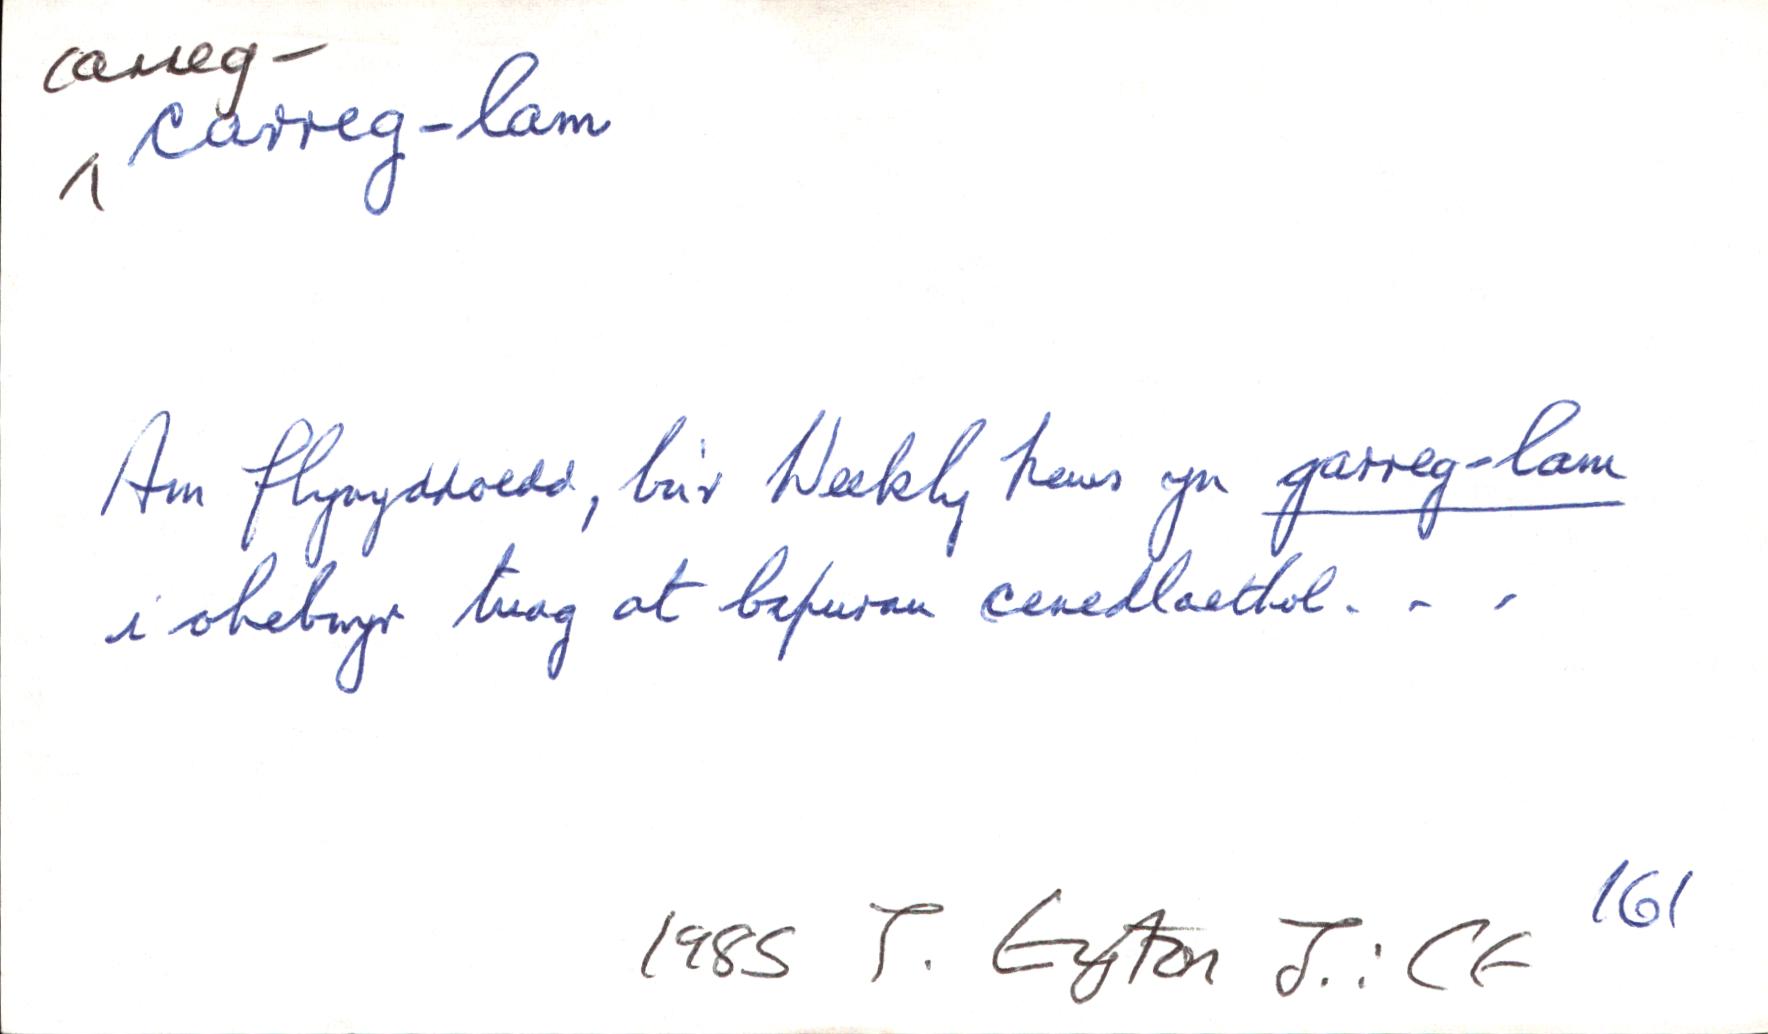 carreg-
carreg-lam
Am flynyddoedd, bu'r Weekly News yn garreg-lam
i ohebwyr tuag at bapurau cenedlaethol. . .
161
1985 T. Eyton J.: CE